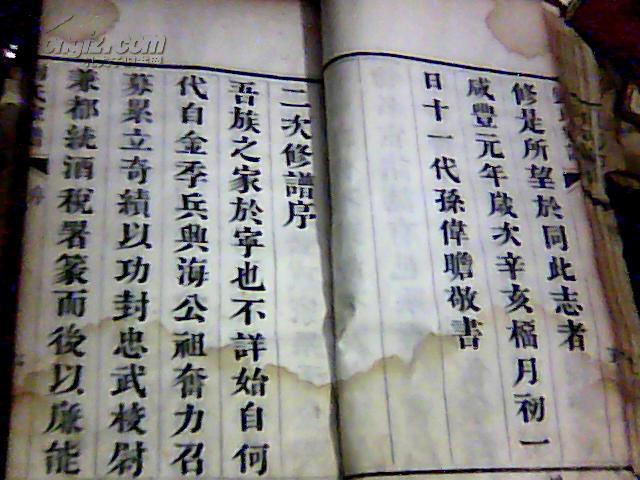 修是所望於同此志者
咸豐元年歲次辛亥橊月初一
日十一代孫偉瞻敬書
二次修譜序
吾族之家於寧也不詳始自何
代自金季兵興海公祖奮力召
募累立奇績以功封忠武校尉
兼都統酒稅署篆而後以廉能